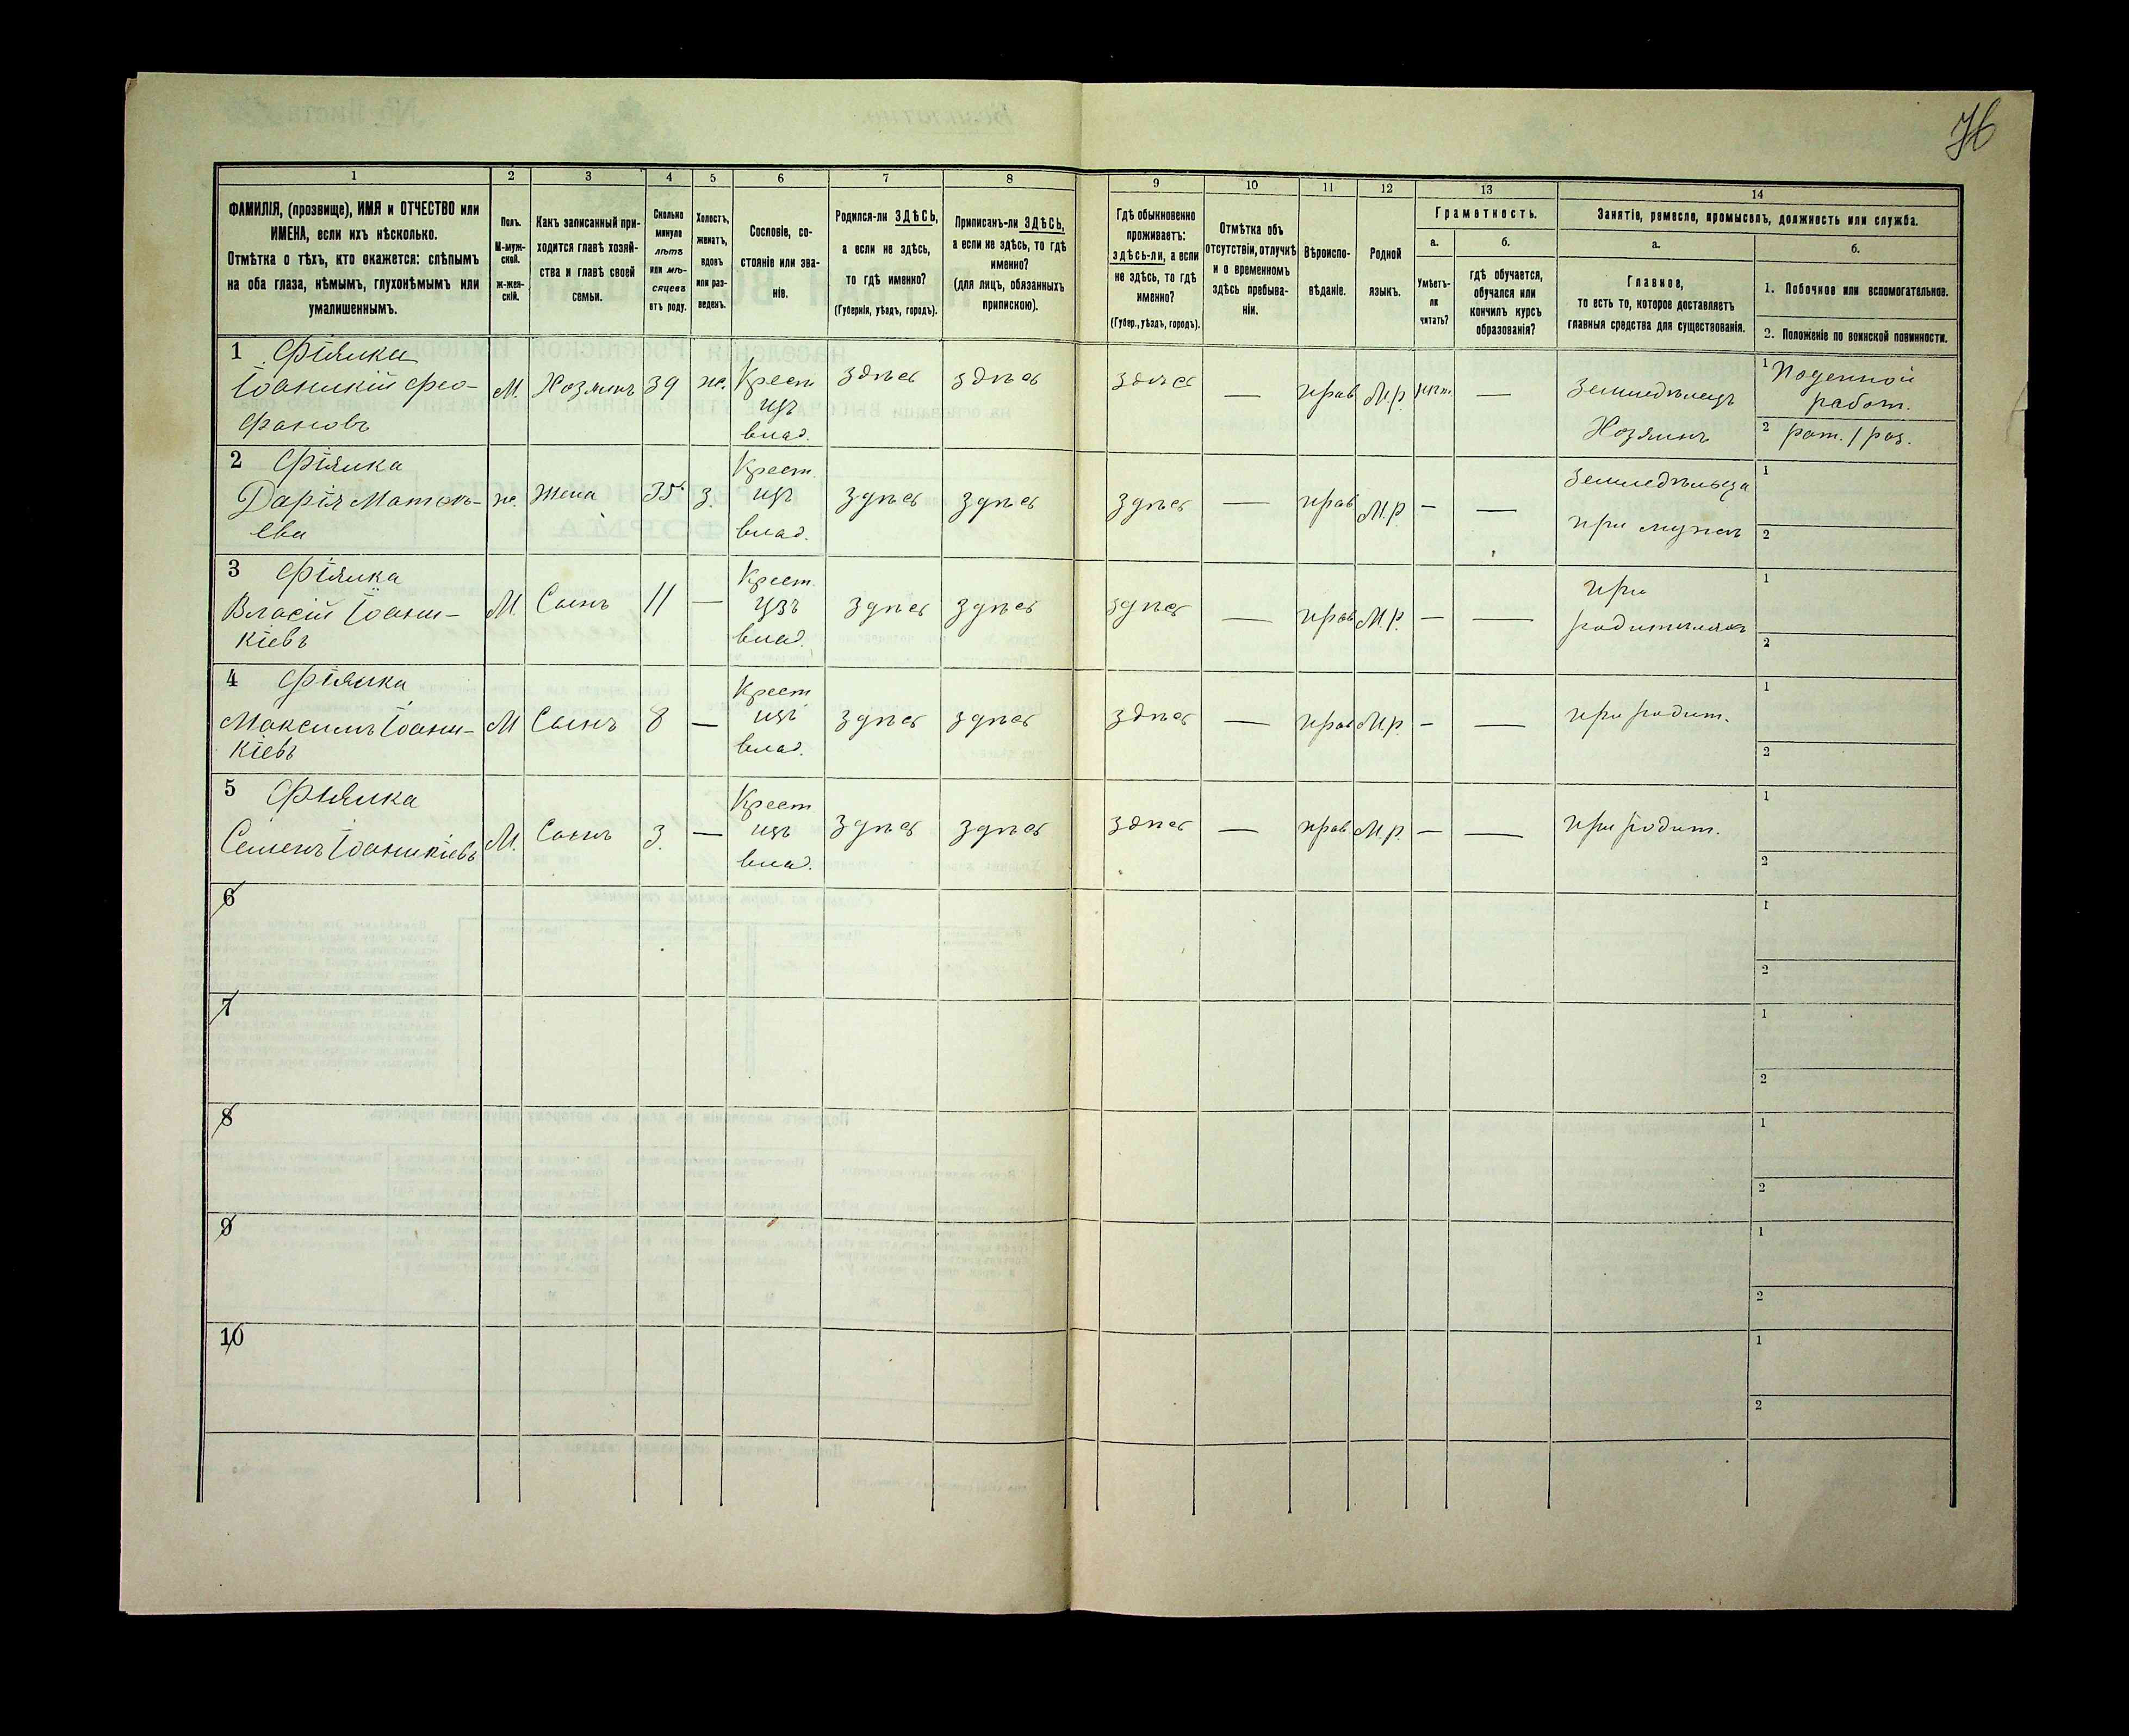 1 2 3 4 5 6 7 8 9 10 11 12 13 14
ФАМИЛІЯ, (прозвище), ИМЯ и ОТЧЕСТВО или
ИМЕНА, если ихъ нѣсколько.
Отмѣтка о тѣхъ, кто окажется: слѣпымъ
на оба глаза, нѣмымъ, глухонѣмымъ или
умалишеннымъ.
Полъ.
М-муж-
ской.
ж-жен-
скій.
Какъ записанный при-
ходится главѣ хозяй-
ства и главѣ своей
семьи.
Сколько
минуло
лѣтъ
или мѣ-
сяцевъ
отъ роду.
Холостъ,
женатъ,
вдовъ
или раз-
веденъ.
Сословіе, со-
стояніе или зва-
ніе.
Родился-ли ЗДѢСЬ,
а если не здѣсь,
то гдѣ именно?
(Губернія, уѣздъ, городъ).
Приписанъ-ли ЗДѢСЬ,
а если не здѣсь, то гдѣ
именно?
(для лицъ, обязанныхъ
припискою).
Гдѣ обыкновенно
проживаетъ:
здѣсь-ли, а если
не здѣсь, то гдѣ
именно?
(Губер., уѣздъ, городъ).
Отмѣтка объ
отсутствіи, отлучкѣ
и о временномъ
здѣсь пребыва-
ніи.
Вѣроиспо-
вѣданіе.
Родной
языкъ.
Грамотность.
а.
Умѣетъ-
ли
читать?
б.
гдѣ обучается,
обучался или
кончилъ курсъ
образованія?
Занятіе, ремесло, промыселъ, должность или служба.
а.
Главное,
то есть то, которое доставляетъ
главныя средства для существованія.
б.
1. Побочное или вспомогательное.
2. Положеніе по воинской повинности.
1 Фіялка
Іоаникій Фео-
фановъ
М. Хозяинъ 39 ж. Крест
изъ
влад.
здѣсь здѣсь здѣсь — прав М.р. —
Земледѣлецъ
Хозяинъ
1 Поденной
работ.
2 рат. 1 раз.
2 Фіялка
Дарія Матвѣ-
ева
ж. Жена 35 З. Крест.
изъ
влад.
здѣсь здѣсь здѣсь — прав М.р. — —
Земледѣльца
при мужѣ
1
2
3 Фіялка
Власій Іоани-
кіевъ
М. Сынъ 11 — Крест.
изъ
влад.
здѣсь здѣсь здѣсь — прав М.р. — —
при
родителяхъ
1
2
4 Фіялка
Максимъ Іоани-
кіевъ
М Сынъ 8 — Крест
изъ
влад.
здѣсь здѣсь здѣсь — прав М.р. — —
при родит.
1
2
5 Фіялка
Семенъ Іоаникіевъ
М. Сынъ 3. — Крест
изъ
влад.
здѣсь здѣсь здѣсь — прав М.р. — —
при родит.
1
2
6
1
2
7
1
2
8
1
2
9
1
2
10
1
2